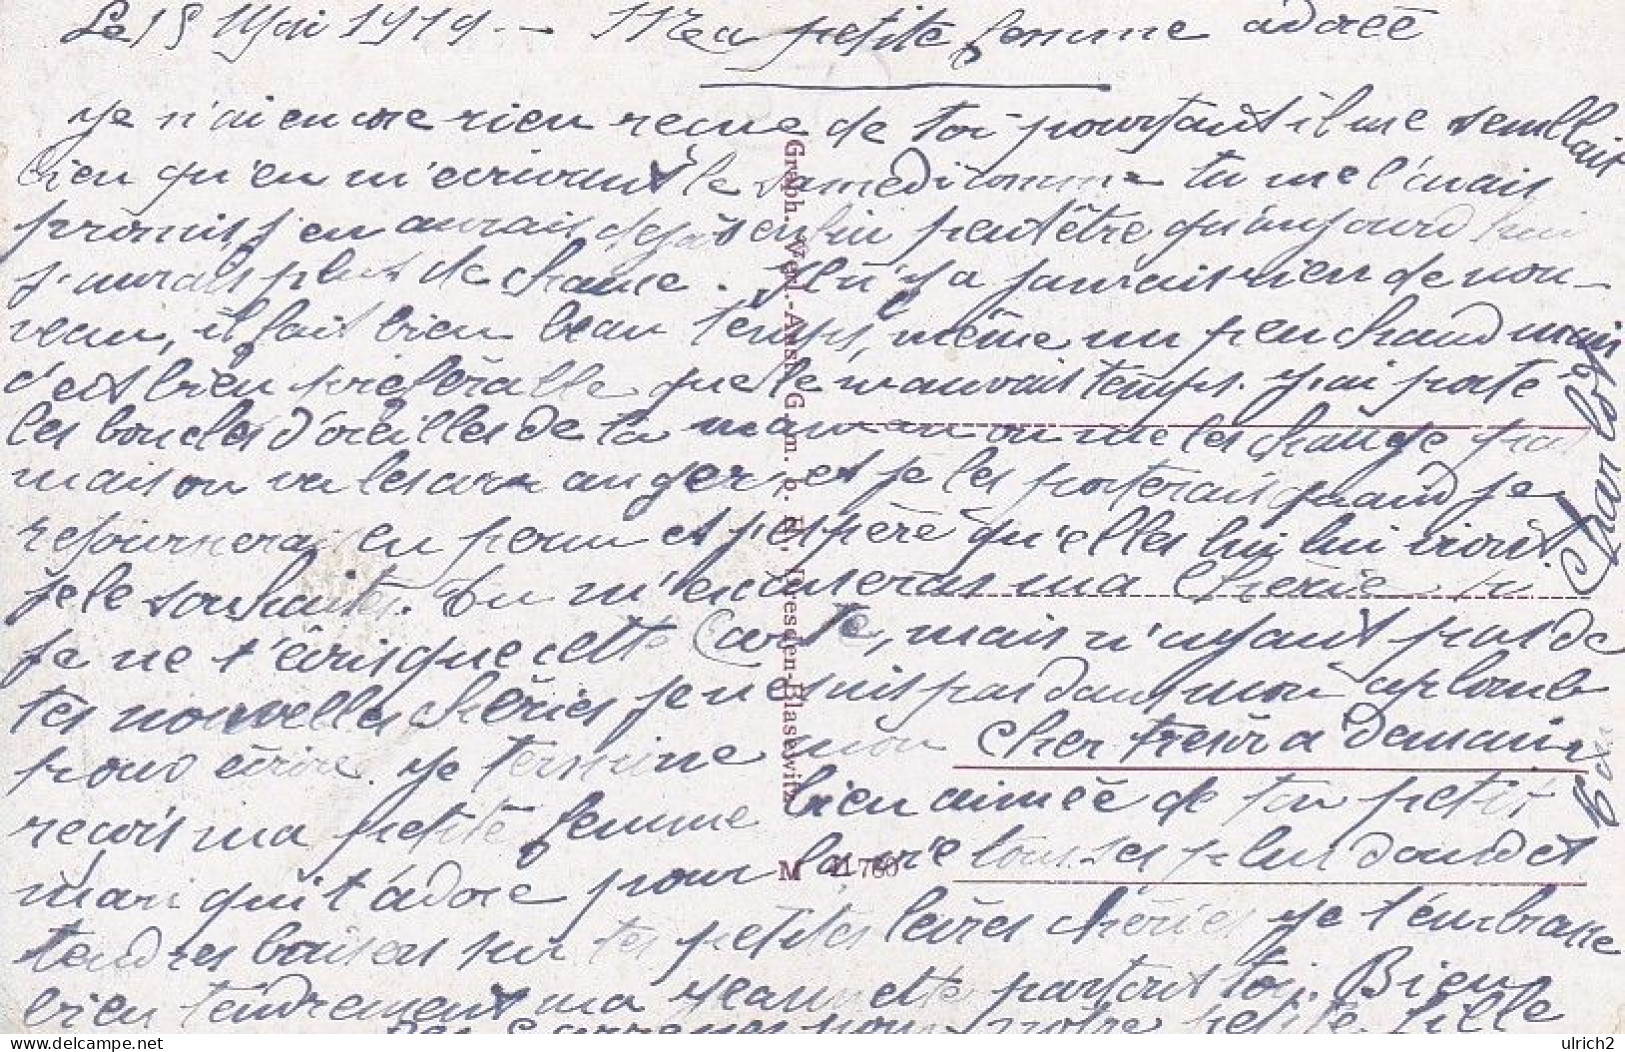 Le 15 Mai 1919. — Ma petite femme adorée
Je n'ai encore rien recue de toi pourtant il me semblait
bien qu'en m'ecrivant le samedi comme tu me l'avais
promis j'en aurais dejà enfin peut être qu'aujourd'hui
j'aurais plus de chance. Il n'y a jamais rien de nou-
veau, il fait bien beau temps, même un peu chaud mais
c'est bien préférable que le mauvais temps. J'ai porté
les boucles d'oreilles de ta maman on me les change pas
mais on va les arranger et je les porterais quand je
retournerai en perm et j'espère qu'elles lui iront.
je le souhaites. Tu m'excuseras ma Chérie si
je ne t'écris que cette Carte, mais n'ayant pas de
tes nouvelles chéries je ne suis pas dans mon aplomb
pour écrire. Je termine mon cher trésor a Demain
reçois ma petite femme bien aimée de ton petit
mari qui t'adore pour la vie tous ses plus doux et
tendres baisers sur tes petites lèvres chéries Je t'embrasse
bien tendrement ma Jeannette partout toi. Bien
des caresses pour notre petite fille
Charlot
Graph. Verl.-Anst. G. m. b. H. Dresden-Blasewitz
M 41780
delcampe.net
ulrich2